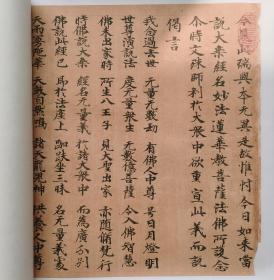 今見此瑞與本無異是故惟忖今日如來當
說大乘經名妙法蓮華教菩薩法佛所護念
尒時文殊師利於大眾中欲重宣此義而說
偈言
我念過去世 無量無數劫 有佛人中尊 号日月燈明
世尊演說法 度无量眾生 无數億菩薩 令入佛智慧
佛未出家時 所生八王子 見大聖出家 亦隨脩梵行
時佛說大乘 經名无量義 於諸大眾中 而為廣分別
佛說此經已 即於法座上 跏趺坐三昧 名无量義處
天雨曼陀華 天鼓自然鳴 諸天龍鬼神 供養人中尊